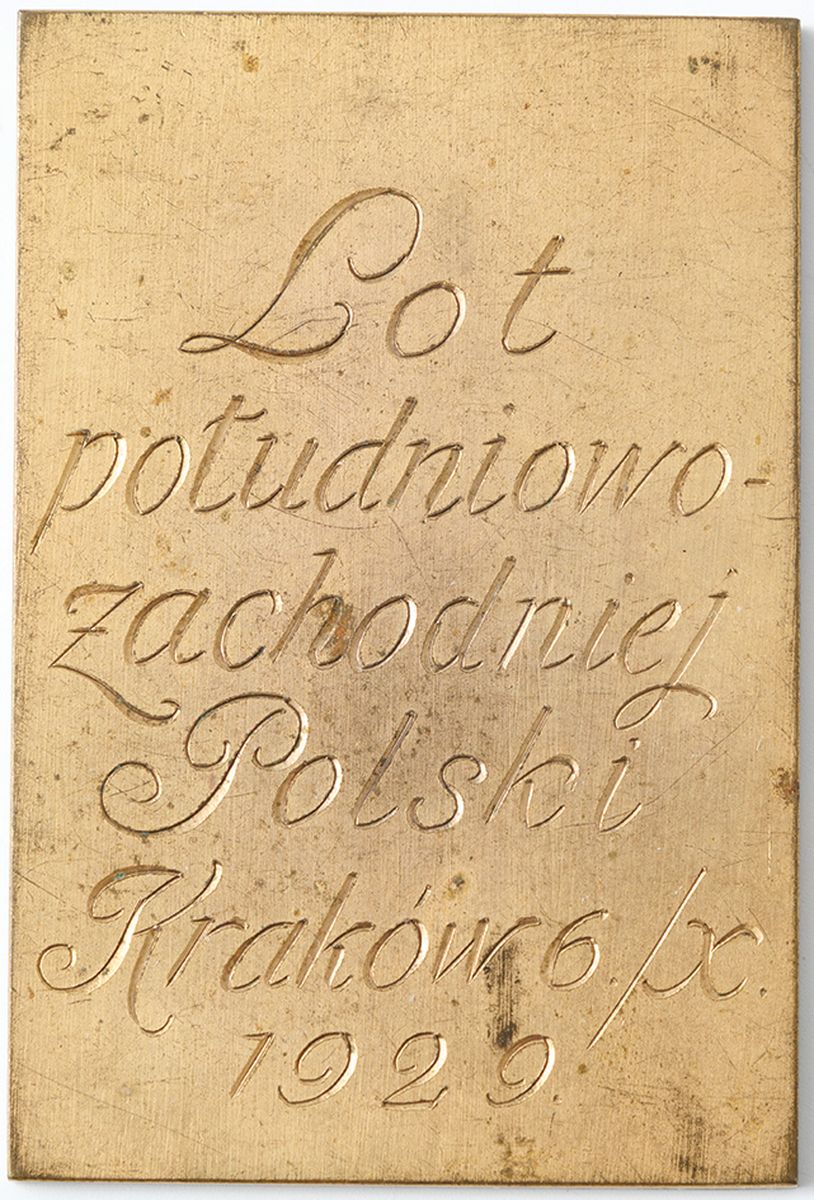 Lot
południowo-
zachodniej
Polski
Kraków 6./x.
1929.